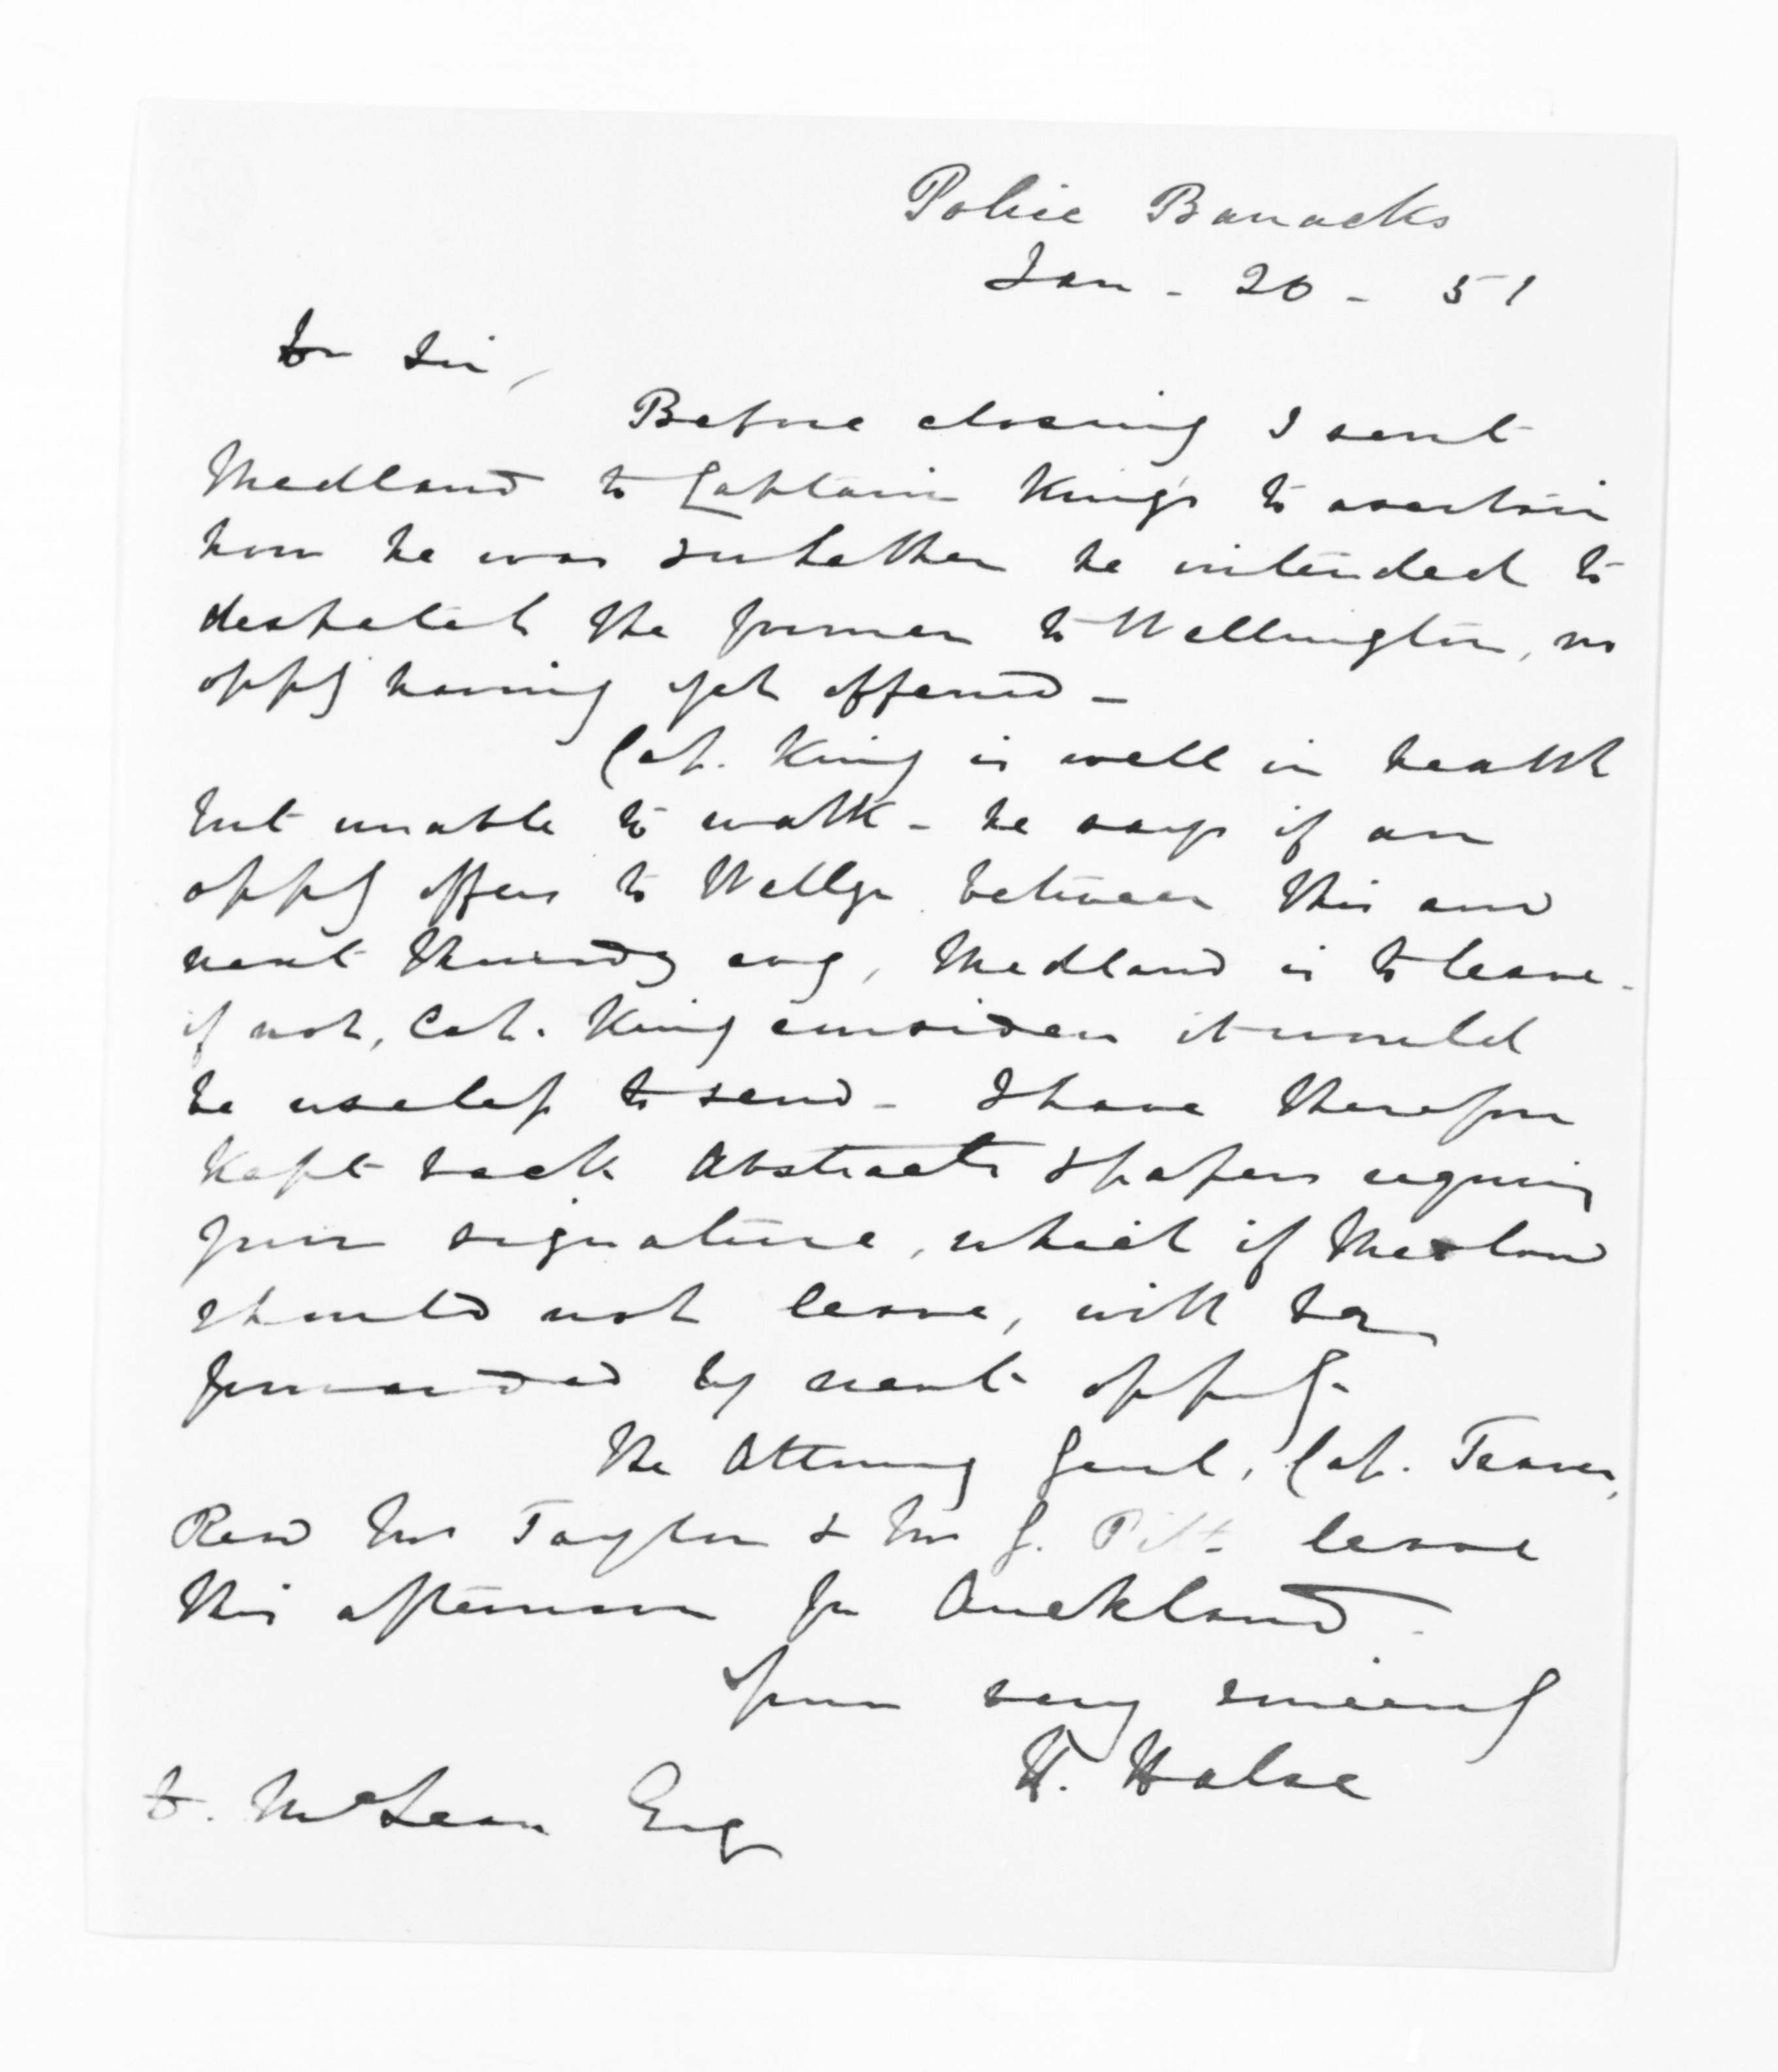 Police Barracks
Jan - 20 - 51
Dr Sir,
Before closing I sent
Medland to Captain King's to ascertain
how he was & whether he intended to
despatch the former to Wellington, no
oppy having yet offered -
Cap. King is well in health
but unable to walk - he says if an
oppy offers to Wellgn between this and
next Thursdy evg, Medland is to leave -
if not, Cap. King considers it would
be useless to send - I have therefore
kept back Abstracts & papers requiring
your signature, which if Medland
should not leave, will be
forwarded by next oppy.
The Attorney Genl, Cap. Travers,
Revd Mr Taylor & Mr G. Pitt leave
this afternoon for Auckland -
Yours very sincerely
H. Halse
D. McLean Esq